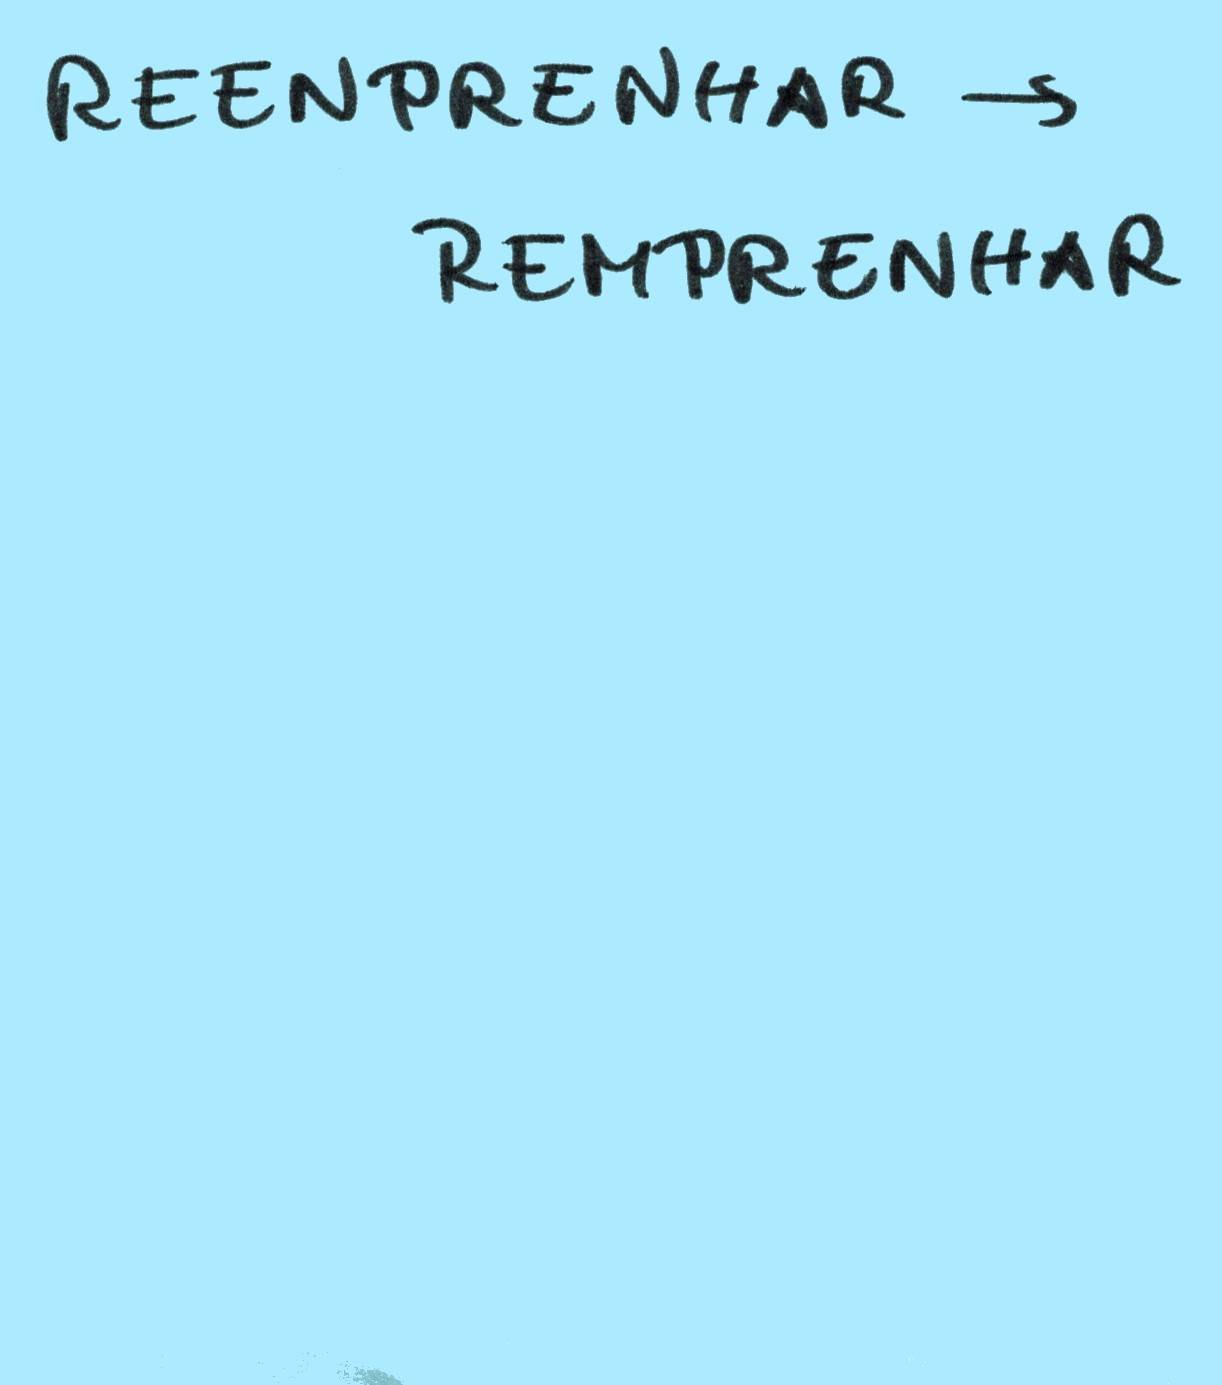 REENPRENHAR →
REMPRENHAR